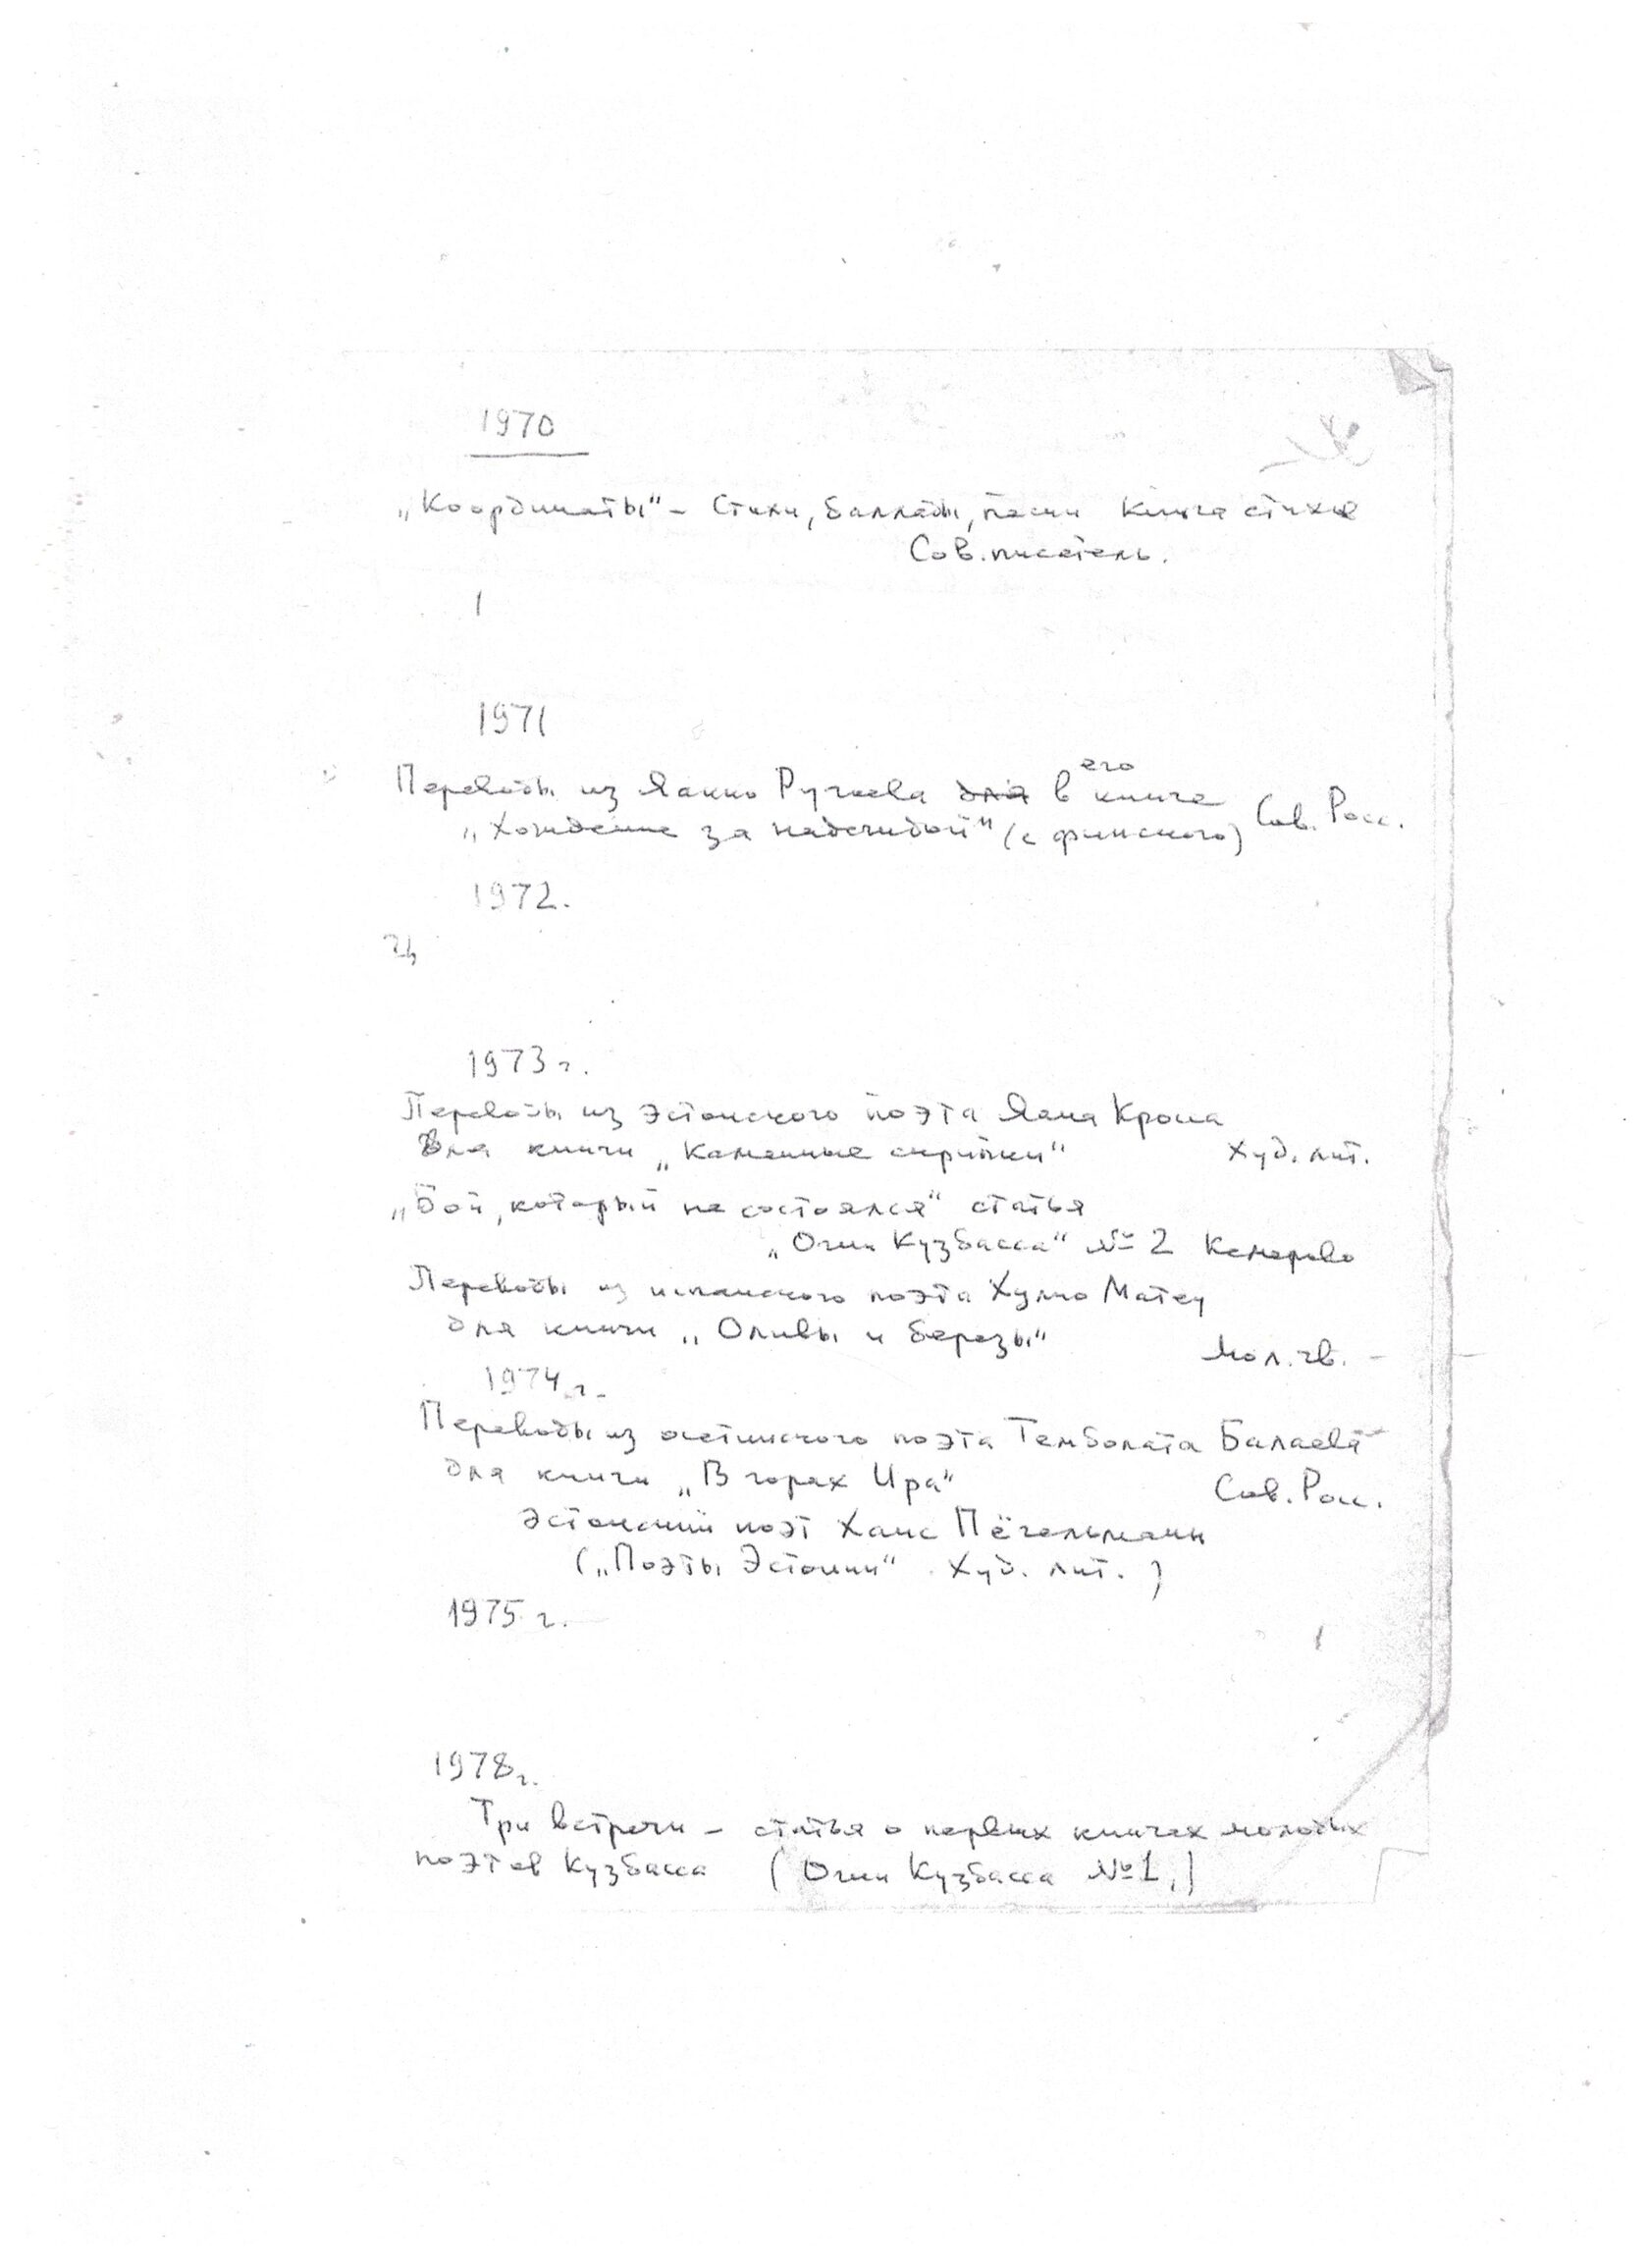 1970
„Координаты" - Стихи, баллады, песни Книга стихов
Сов. писатель.
1971
Переводы из Яакко Ругоева для в его книге
„Хождение за надеждой" (с финского) Сов. Росс.
1972.
1973 г.
Переводы из эстонского поэта Яана Кросса
для книги „Каменные скрипки" Худ. лит.
„Бой, который не состоялся" статья
„Огни Кузбасса" № 2 Кемерово
Переводы из испанского поэта Хулио Матеу
для книги „Оливы и березы" Мол. гв.
1974 г.
Переводы из осетинского поэта Темболата Балаева
для книги „В горах Ира" Сов. Росс.
Эстонский поэт Ханс Пёгельманн
(„Поэты Эстонии" Худ. лит.)
1975 г.
1978 г.
Три встречи - статья о первых книгах молодых
поэтов Кузбасса (Огни Кузбасса № 1,)